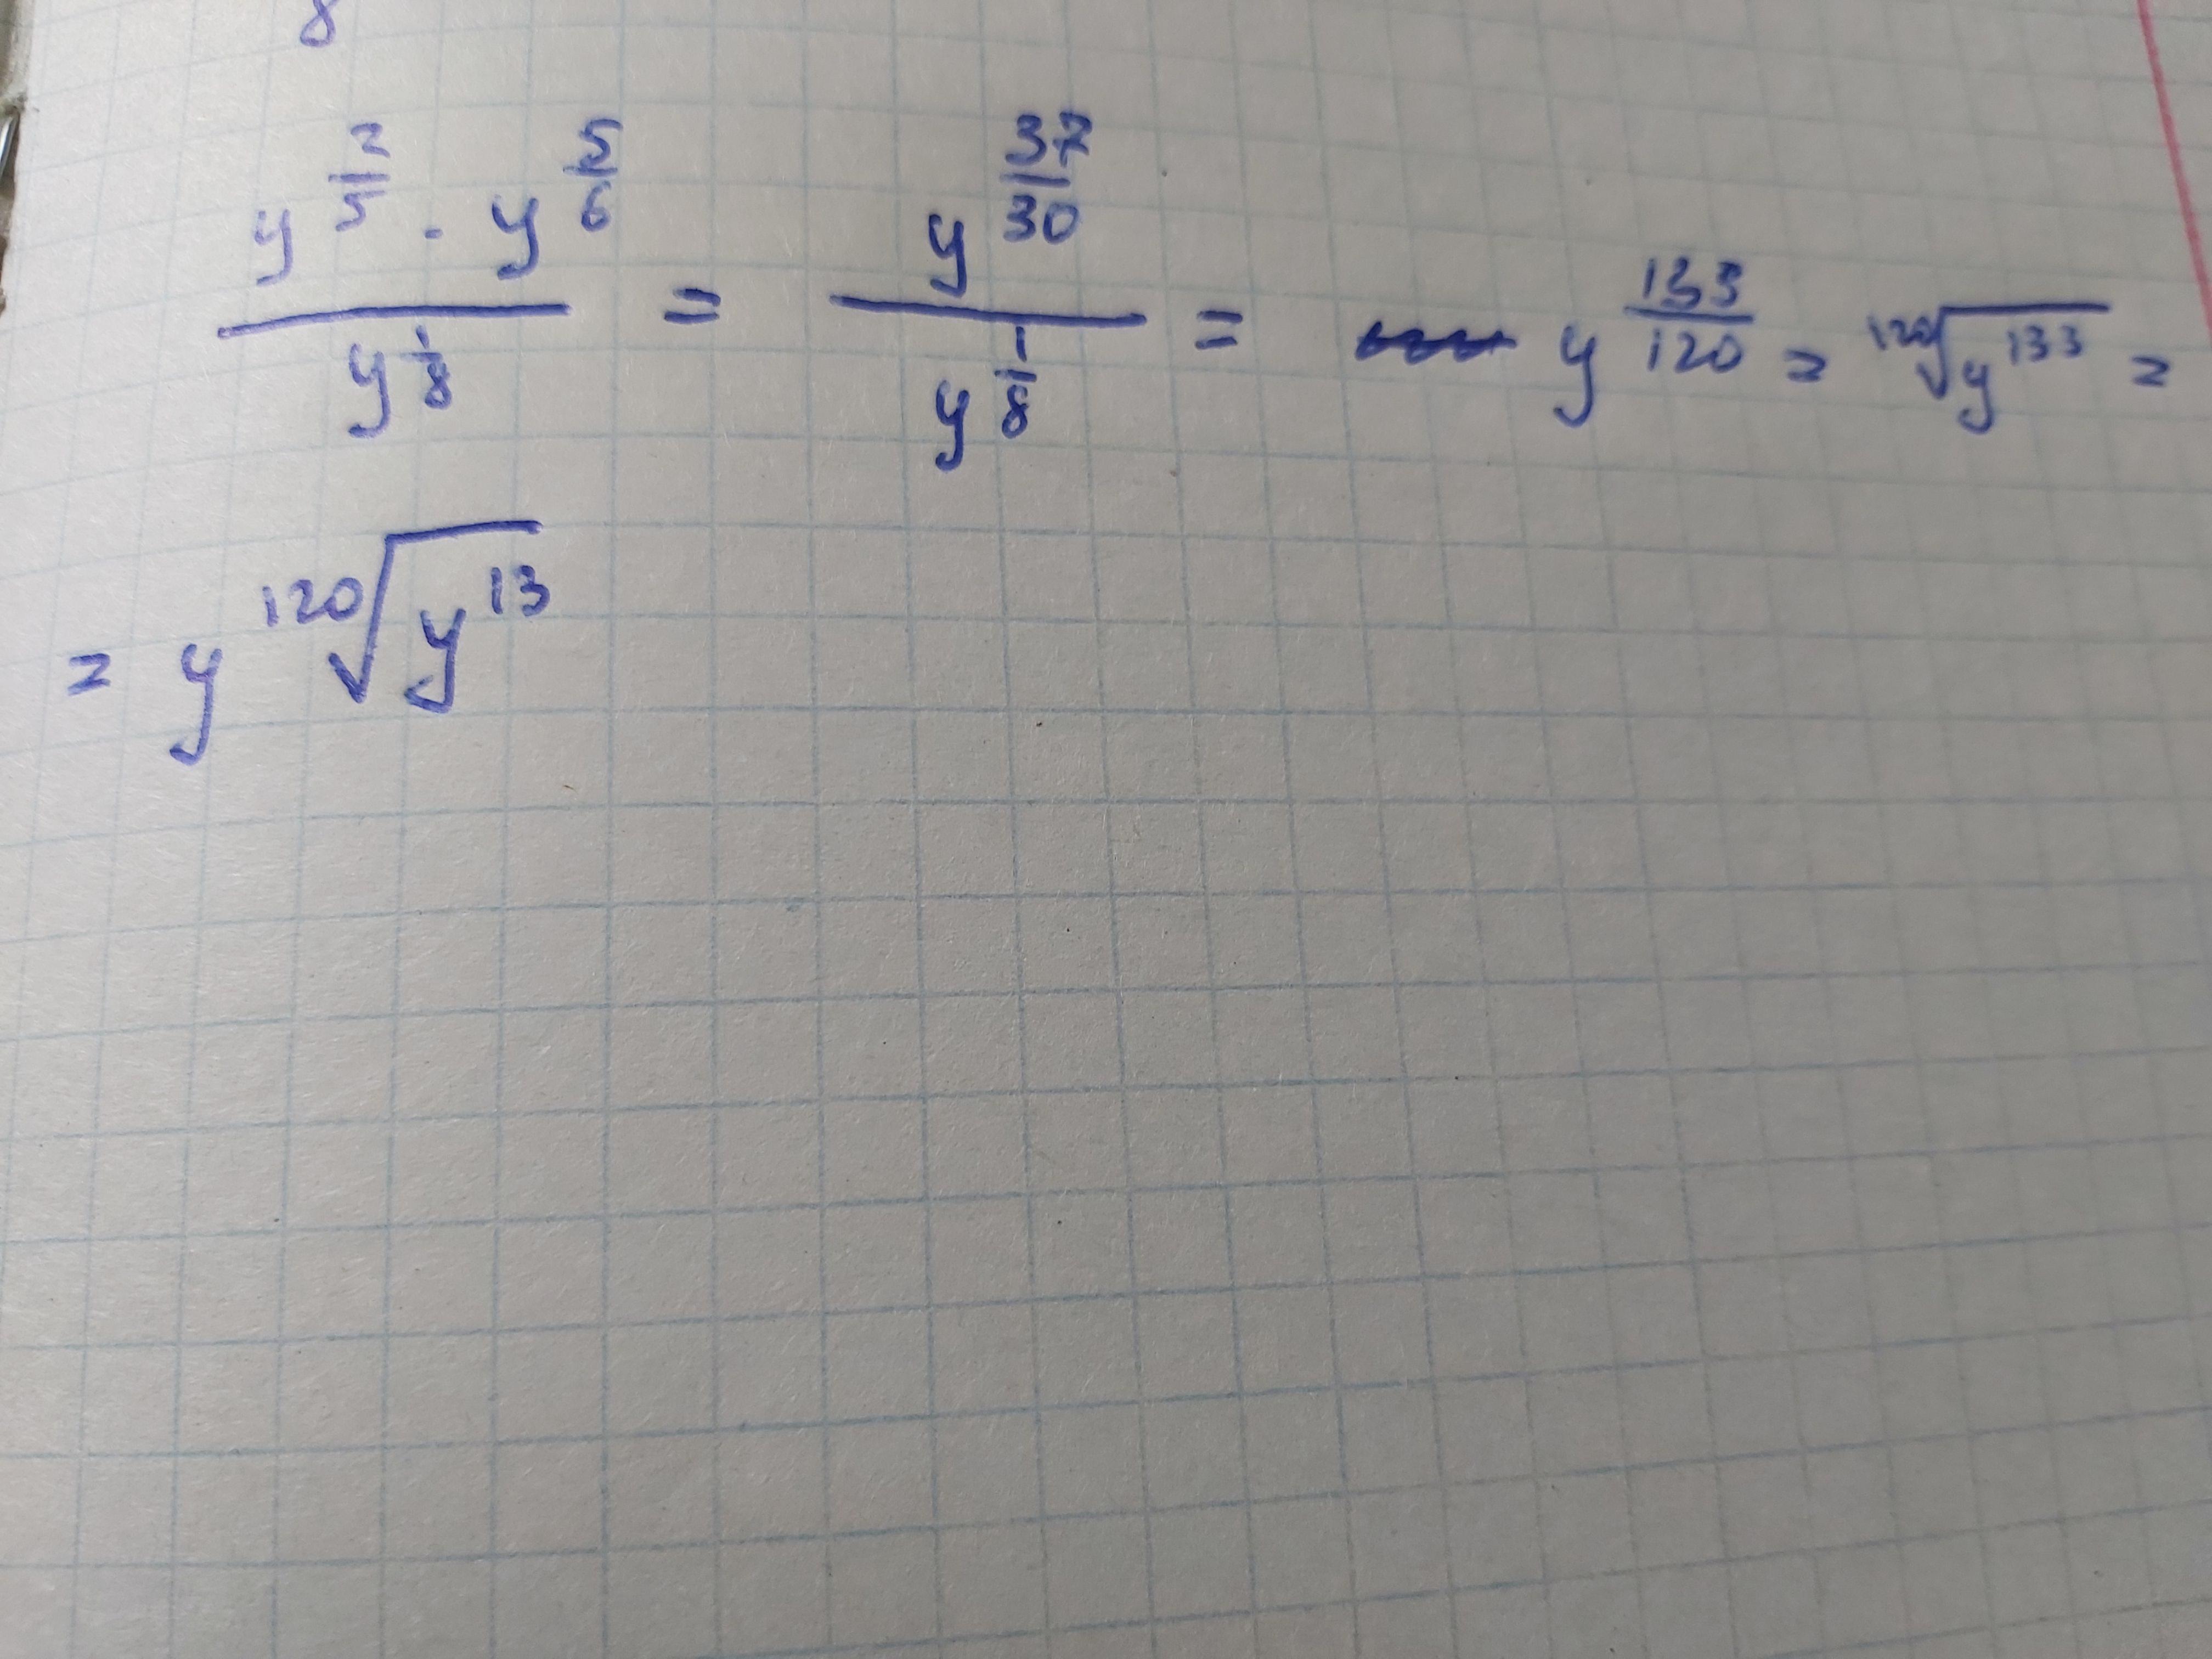 8
y^{2/5} · y^{5/6} / y^{1/8} = y^{37/30} / y^{1/8} = y^{133/120} = \sqrt[120]{y^{133}} =
= y \sqrt[120]{y^{13}}